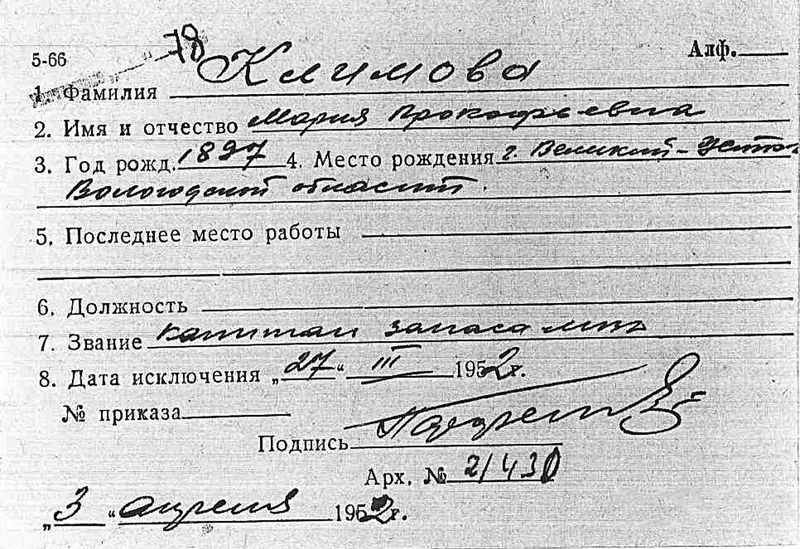 5-66 78 Алф.
1. Фамилия Климова
2. Имя и отчество Мария Прокофьевна
3. Год рожд. 1897 4. Место рождения г. Великий-Устюг
Вологодской области.
5. Последнее место работы
6. Должность
7. Звание капитан запаса
8. Дата исключения „27“ III 1952г.
№ приказа
Подпись
Арх. № 21430
„3“ апреля 1952г.